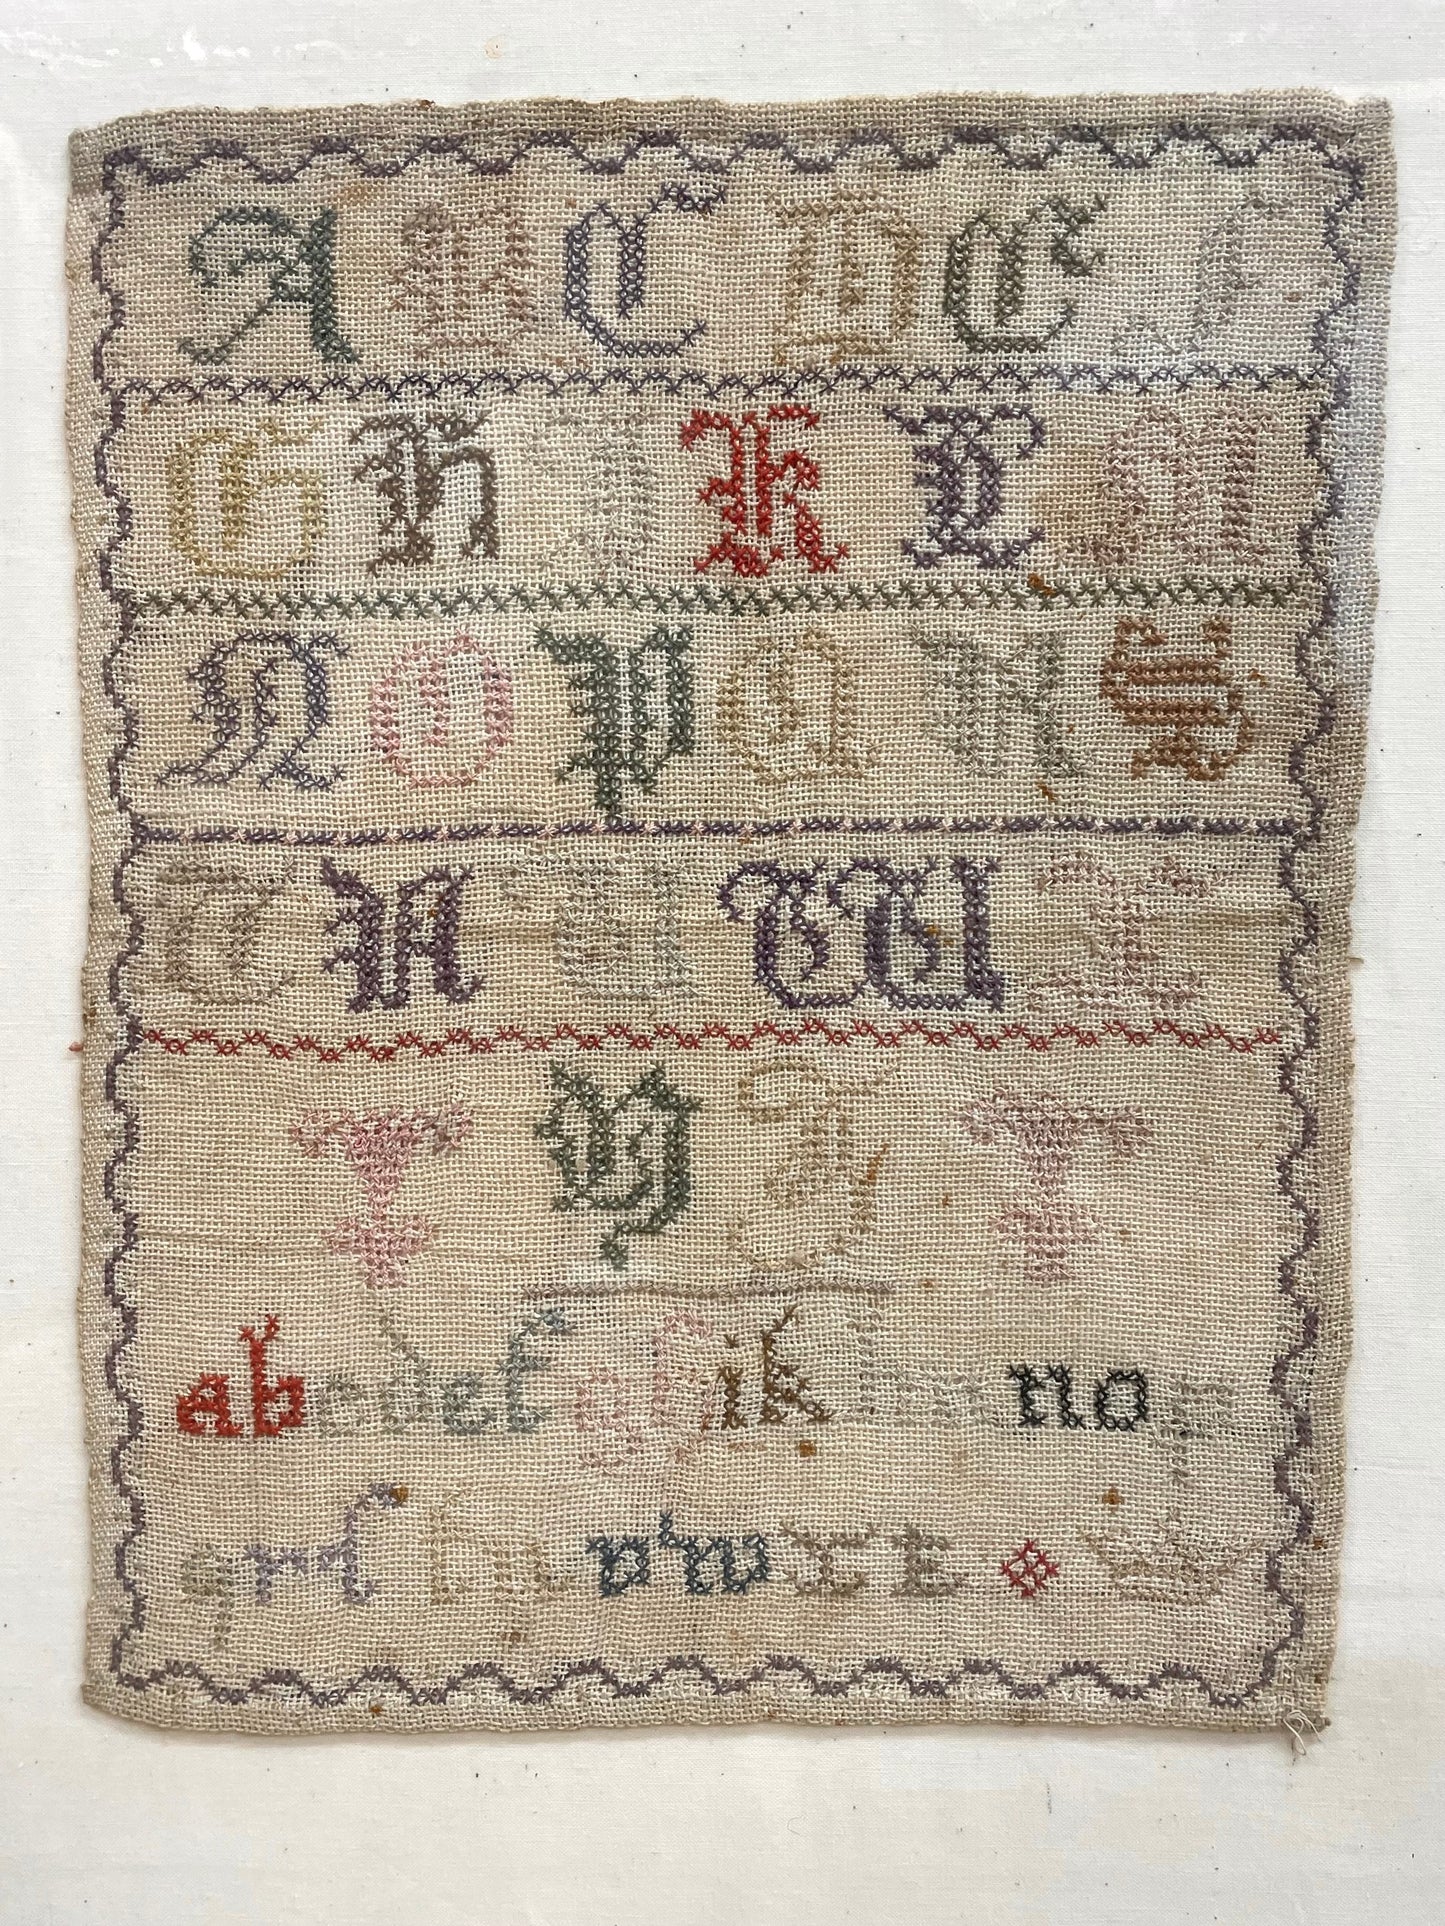 A B C D E F
G H I K L M
N O P Q R S
T U V W X
Y Z
a b c d e f g h i k l m n o p
q r ſ t u v w x z